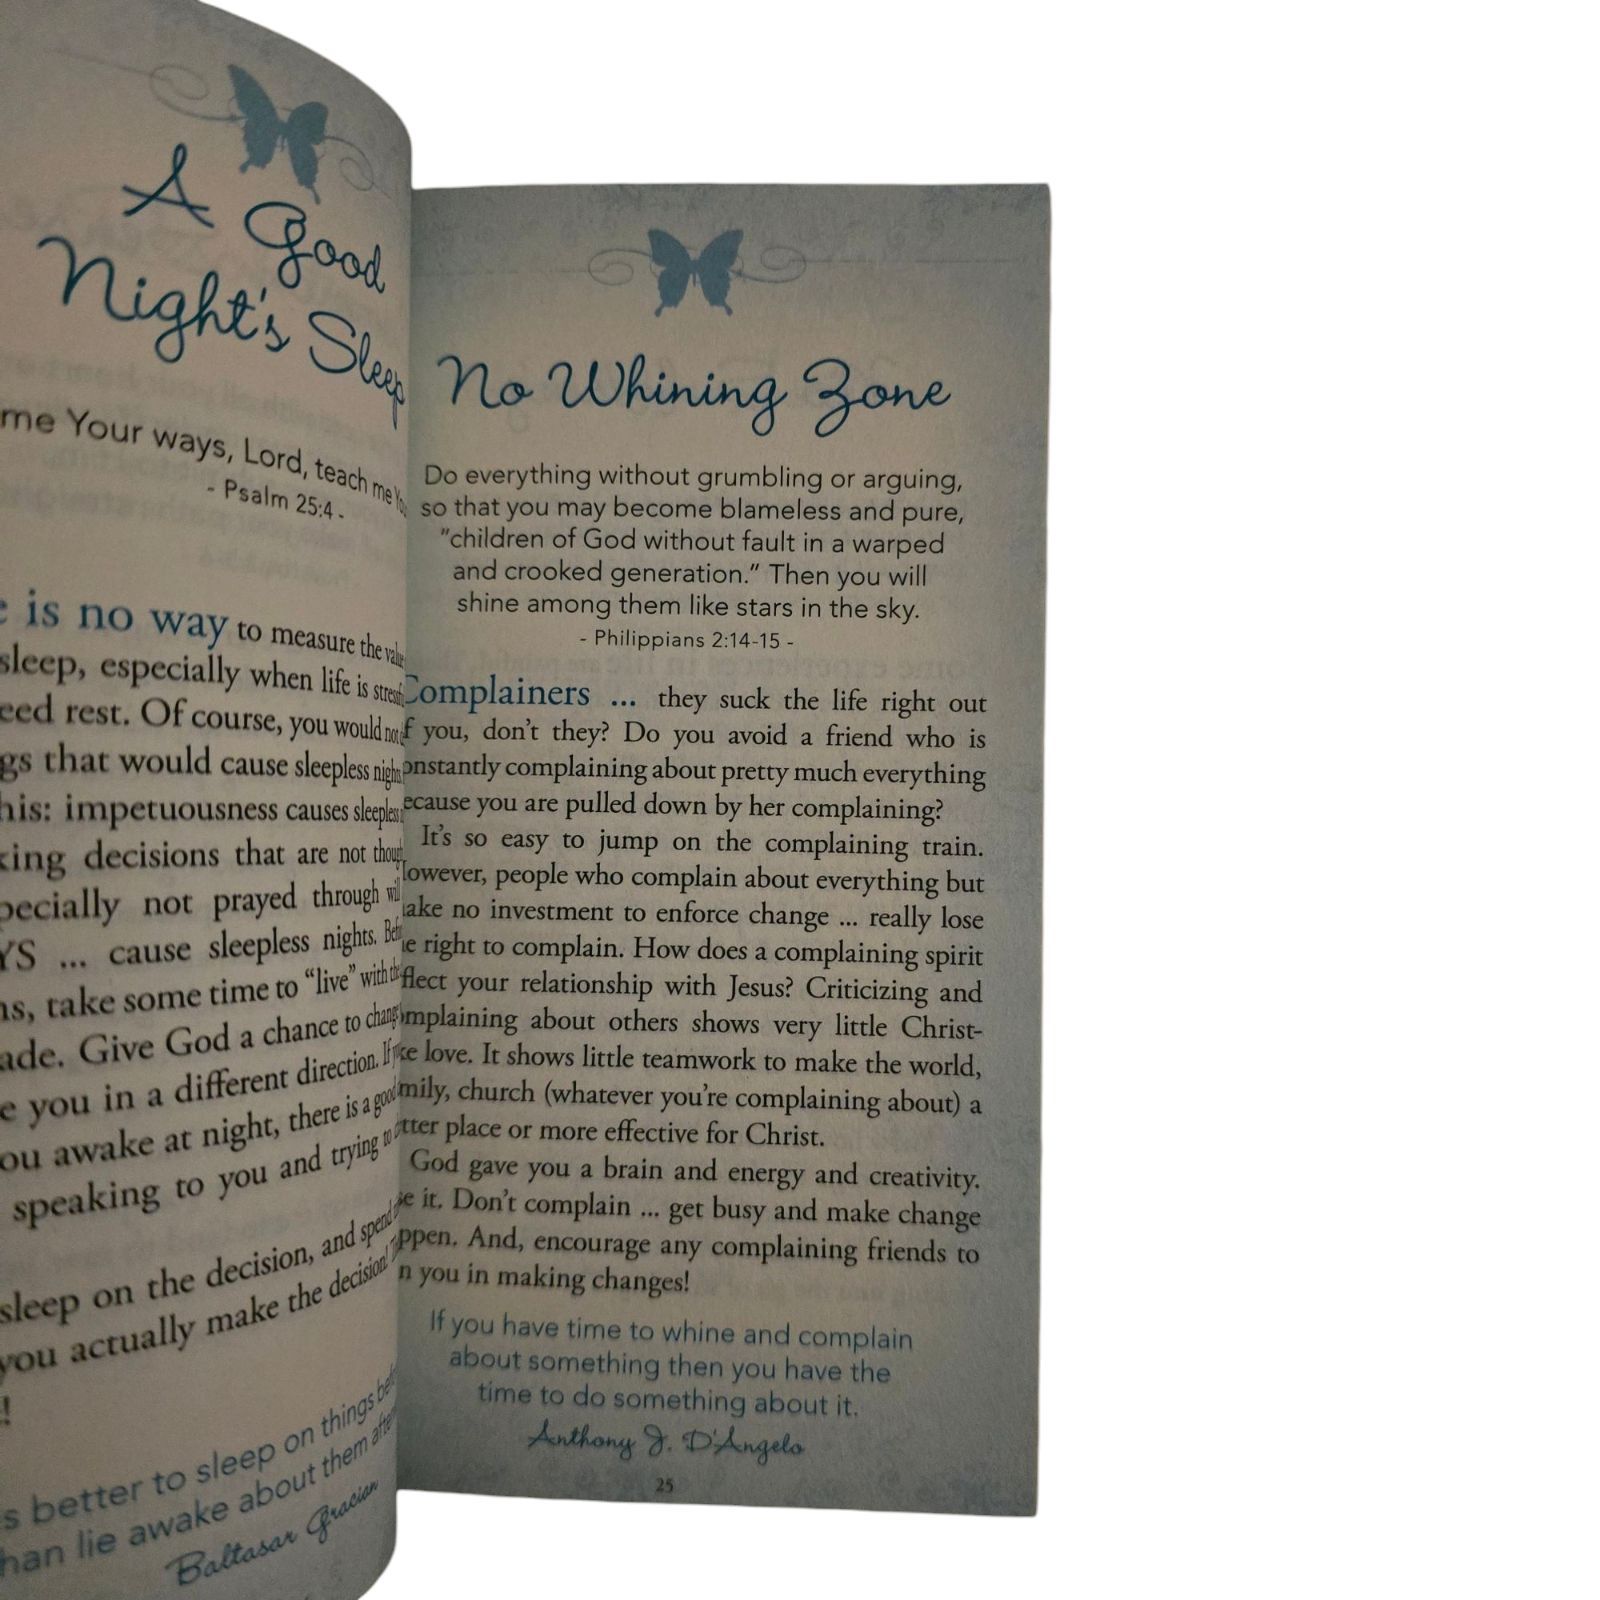 A Good
Night's Sleep
me Your ways, Lord, teach me
- Psalm 25:4 -
is no way to measure the
sleep, especially when life is
rest. Of course, you would
that would cause sleepless
impetuousness causes
decisions that are not
not prayed through
... cause sleepless nights.
take some time to "live" with
Give God a chance to
you in a different direction.
awake at night, there is a good
speaking to you and trying to
sleep on the decision, and
you actually make the decision!
!
better to sleep on things
lie awake about them
Baltasar Gracian
No Whining Zone
Do everything without grumbling or arguing,
so that you may become blameless and pure,
"children of God without fault in a warped
and crooked generation." Then you will
shine among them like stars in the sky.
- Philippians 2:14-15 -
Complainers ... they suck the life right out
f you, don't they? Do you avoid a friend who is
onstantly complaining about pretty much everything
ecause you are pulled down by her complaining?
It's so easy to jump on the complaining train.
owever, people who complain about everything but
ake no investment to enforce change ... really lose
e right to complain. How does a complaining spirit
flect your relationship with Jesus? Criticizing and
mplaining about others shows very little Christ-
ke love. It shows little teamwork to make the world,
mily, church (whatever you're complaining about) a
tter place or more effective for Christ.
God gave you a brain and energy and creativity.
e it. Don't complain ... get busy and make change
ppen. And, encourage any complaining friends to
n you in making changes!
If you have time to whine and complain
about something then you have the
time to do something about it.
Anthony J. D'Angelo
25